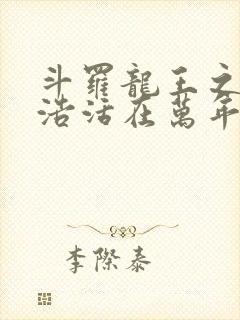 斗羅龍王之
浩活在萬年
李際泰